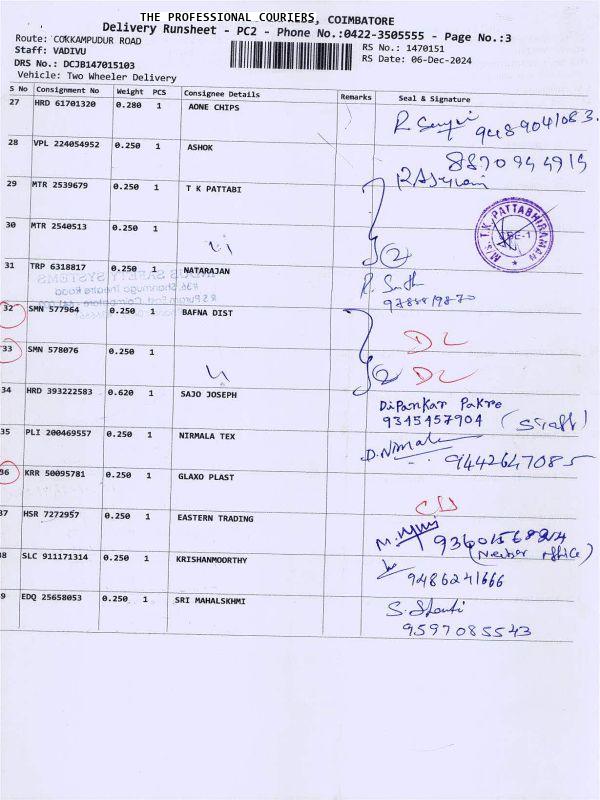 THE PROFESSIONAL COURIERS, COIMBATORE
Delivery Runsheet - PC2 - Phone No.:0422-3505555 - Page No.:3
Route: COKKAMPUDUR ROAD
RS No.: 1470151
Staff: VADIVU
RS Date: 06-Dec-2024
DRS No.: DCJB147015103
Vehicle: Two Wheeler Delivery
S No Consignment No Weight PCS Consignee Details Remarks Seal & Signature
27 HRD 61701320 0.280 1 AONE CHIPS
28 VPL 224054952 0.250 1 ASHOK
8870944919
29 MTR 2539679 0.250 1 T K PATTABI
M/s. T.K. PATTABHIRAMAN
30 MTR 2540513 0.250 1
2
31 TRP 6318817 0.250 1 NATARAJAN
INDUS SAFETY SYSTEMS
32 SMN 577964 0.250 1 BAFNA DIST DL
33 SMN 578076 0.250 1 2 DL
34 HRD 393222583 0.620 1 SAJO JOSEPH Dipankar Pakre
9345457904 (Staff)
35 PLI 200469557 0.250 1 NIRMALA TEX D.Nirmala
9442647085
36 KRR 50095781 0.250 1 GLAXO PLAST
37 HSR 7272957 0.250 1 EASTERN TRADING
(Neiber office)
38 SLC 911171314 0.250 1 KRISHANMOORTHY
9486241666
39 EDQ 25658053 0.250 1 SRI MAHALSKHMI S. Shanti
9597085543